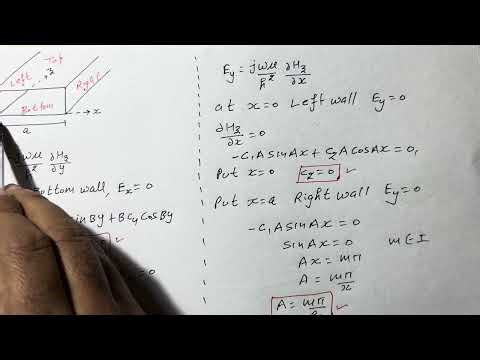 Top
Left
z
Right
Bottom
x
a
jωμ/h² ∂Hz/∂y
Bottom wall, Ex=0
sinBy + BC4 cosBy
Ey = jωμ/h² ∂Hz/∂x
at x=0 Left wall Ey=0
∂Hz/∂x = 0
-C1AsinAx + C2AcosAx = 0,
Put x=0 C2=0 ✓
Put x=a Right wall Ey=0
-C1AsinAx = 0
sinAx = 0 m∈I
Ax = mπ
A = mπ/x
A = mπ/a ✓